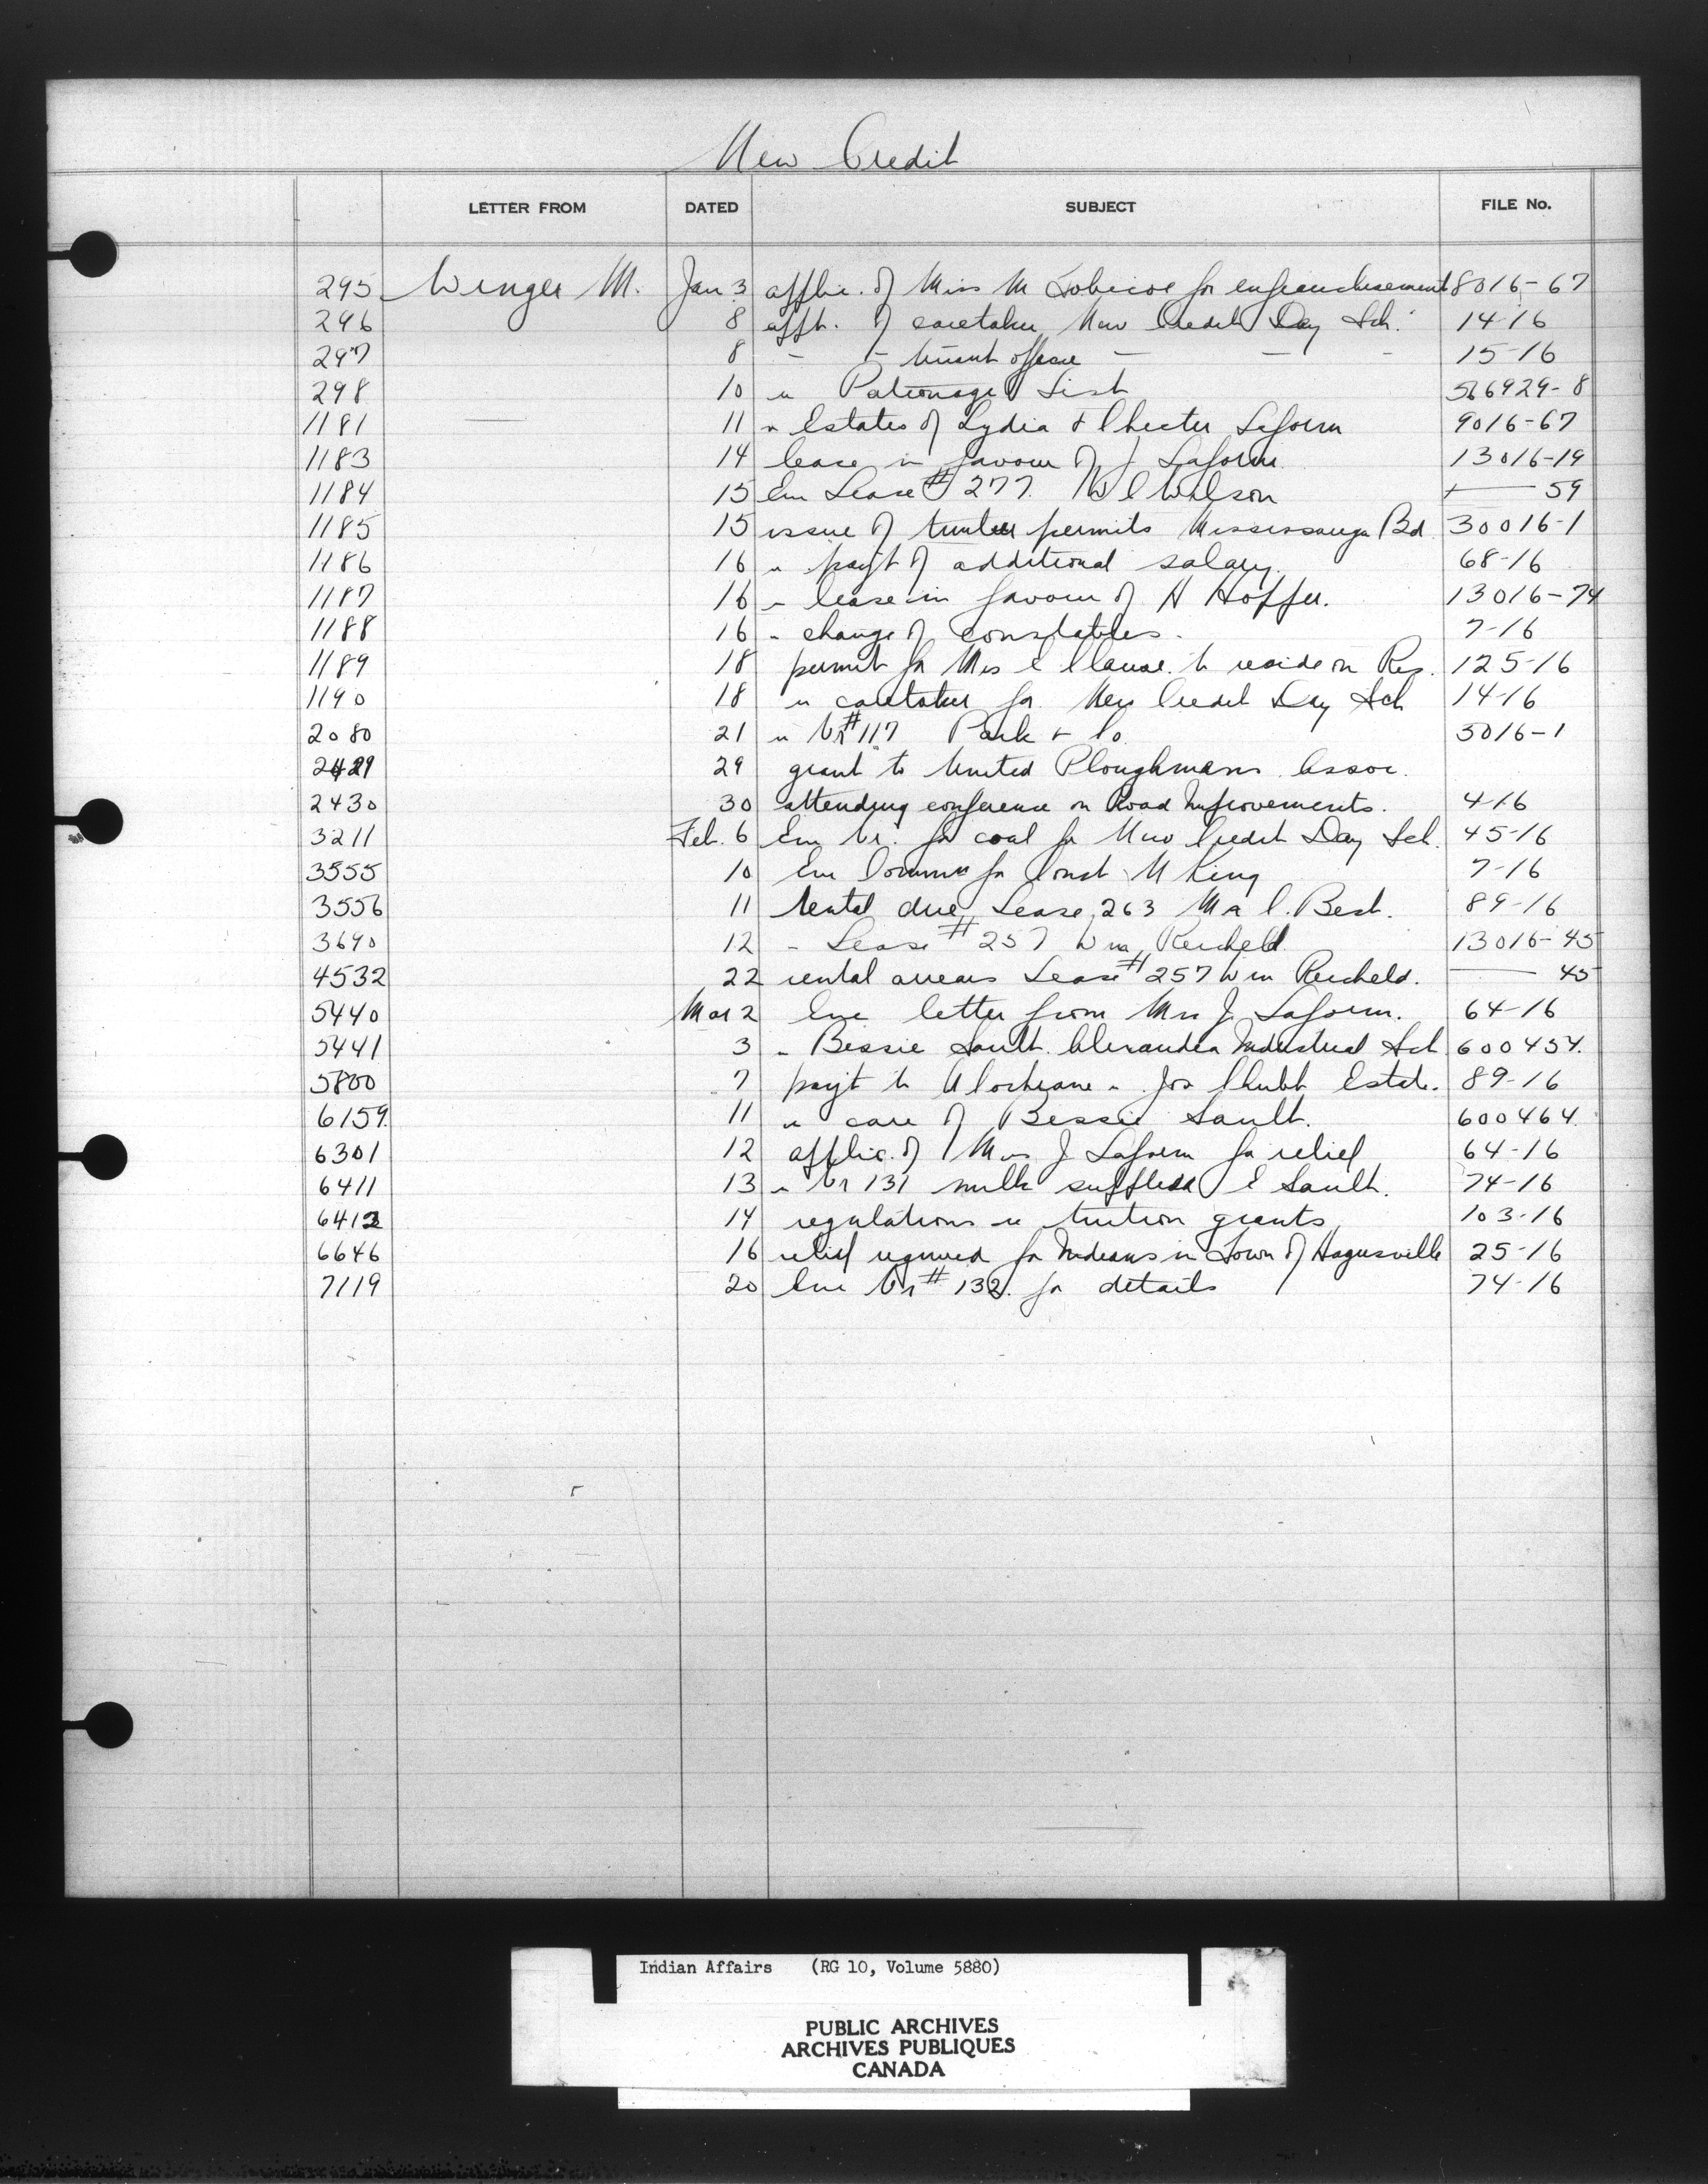 New Credit
LETTER FROM DATED SUBJECT FILE No.
295 Winger M. Jan 3 applic. of Miss M Tobicoe for enfranchisement 8016-67
296 8 appt. of caretaker New Credit Day Sch. 14-16
297 8 - - truant officer - - - 15-16
298 10 re Patronage List 566929-8
1181 11 re Estates of Lydia & Chester Laform 9016-67
1183 14 lease in favour of J Laform 13016-19
1184 15 Enc Lease # 277. W C Wilson 59
1185 15 issue of timber permits Mississauga Bd 30016-1
1186 16 re payt of additional salary. 68-16
1187 16 re lease in favour of H Hoffer. 13016-74
1188 16 re change of constables. 7-16
1189 18 permit for Mrs C Clause to reside on Res. 125-16
1190 18 re caretaker for New Credit Day Sch 14-16
2080 21 re Vr #117 Park & Co. 5016-1
2429 29 grant to United Ploughmans Assoc.
2430 30 attending conference on Road Improvements. 4-16
3211 Feb. 6 Enc Vr. for coal for New Credit Day Sch. 45-16
3555 10 Enc for Const M King 7-16
3556 11 rental due Lease 263 C. Best. 89-16
3690 12 - Lease # 257 Wm Reicheld 13016-45
4532 22 rental arrears Lease # 257 Wm Reicheld. 45
5440 Mar 2 Enc letter from Mrs J. Laform. 64-16
5441 3 re Bessie Sault. Alexandra Industrial Sch 600454.
5800 7 payt to A Cochrane re Jos Chubb Estate. 89-16
6159. 11 re care of Bessie Sault. 600464.
6301 12 applic. of Mrs J Laform for relief 64-16
6411 13 re Vr 131 milk supplied E Sault. 74-16
6412 14 regulations re tuition grants 103-16
6646 16 relief required for Indians in Town of Hagersville 25-16
7119 20 Enc Vr # 132. for details 74-16
Indian Affairs (RG 10, Volume 5880)
PUBLIC ARCHIVES
ARCHIVES PUBLIQUES
CANADA